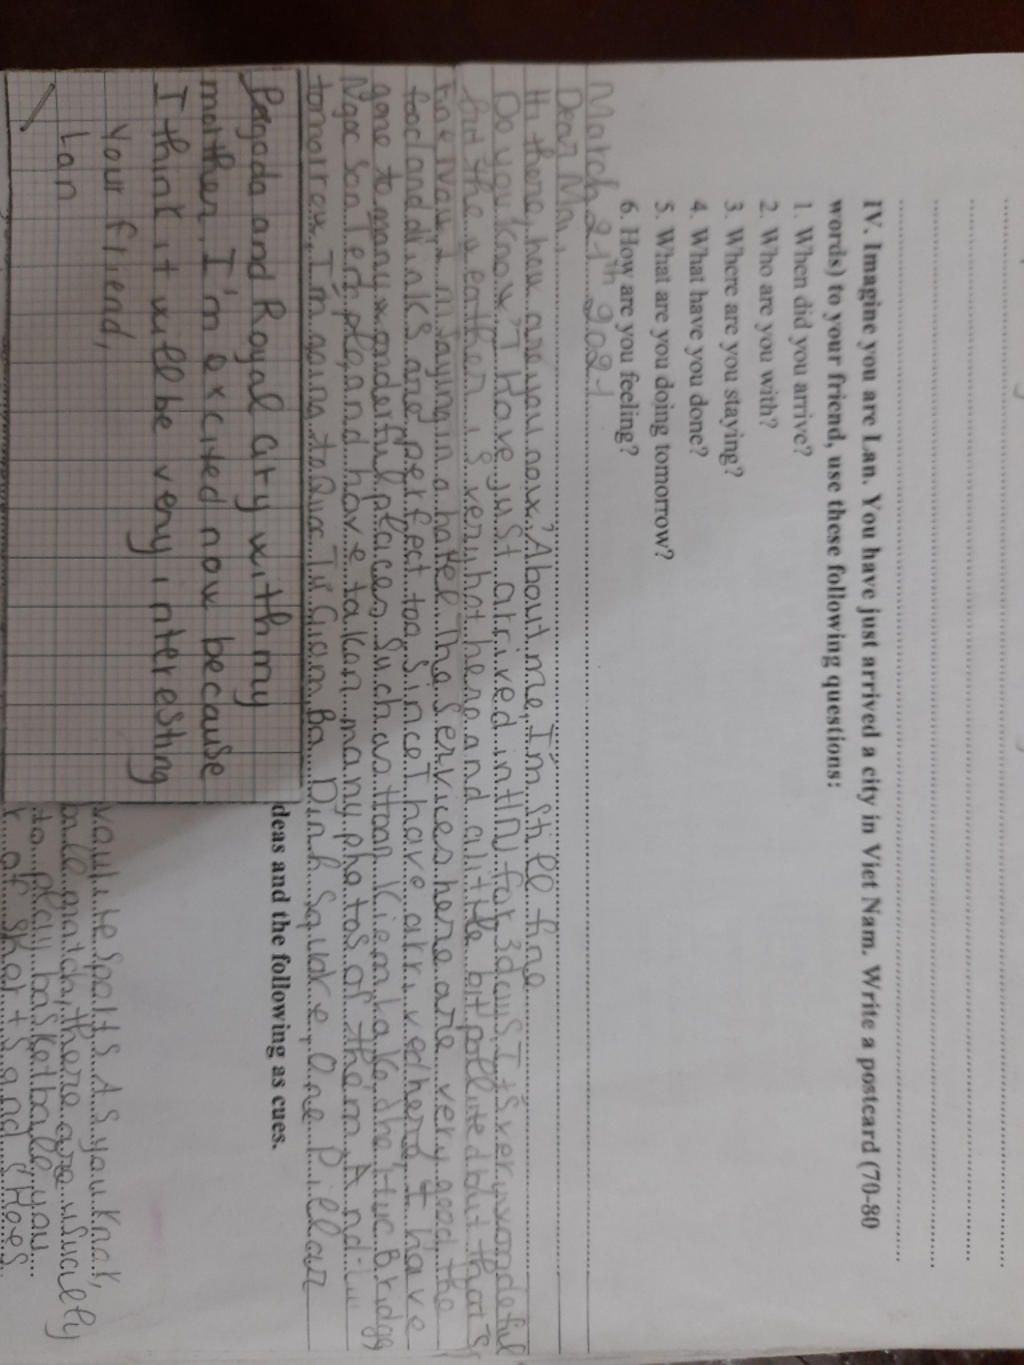 IV. Imagine you are Lan. You have just arrived a city in Viet Nam. Write a postcard (70-80
words) to your friend, use these following questions:
1. When did you arrive?
2. Who are you with?
3. Where are you staying?
4. What have you done?
5. What are you doing tomorrow?
6. How are you feeling?
March 21th 2021
Dear Mai,
Hi there, how are you now? About me, I'm still fine
Do you know? I have just arrived in HN for 3 days. It's very wondeful
but the weather is very hot here and a little bit polluted but that's
fine now. I'm staying in a hotel. The services here are very good, the
food and drinks are perfect too. Since I have arrived here, I have
gone to many wonderful places such as Hoan Kiem Lake, the Huc Bridge
Ngoc Son Temple, and have taken many photos of them. And
tomorrow, I'm going to Quoc Tu Giam Ba Dinh Square, One Pillar
Pagoda and Royal City with my
mother. I'm excited now because
I think it will be very interesting
Your friend,
Lan
deas and the following as cues.
sports. As you know,
match, there are usually
to play basketball, you
of shorts and shoes